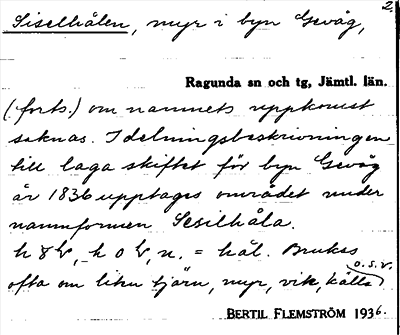 2.
Siselhålen, myr i byn Gevåg,
Ragunda sn och tg, Jämtl. län.
(forts.) om namnets uppkomst
saknas. I delningsbeskrivningen
till laga skiftet för byn Gevåg
år 1836 upptages området under
namnformen Sesilhåla.
n. = hål. Brukas
ofta om liten tjärn, myr, vik, källa
o.s.v.
BERTIL FLEMSTRÖM 1936.